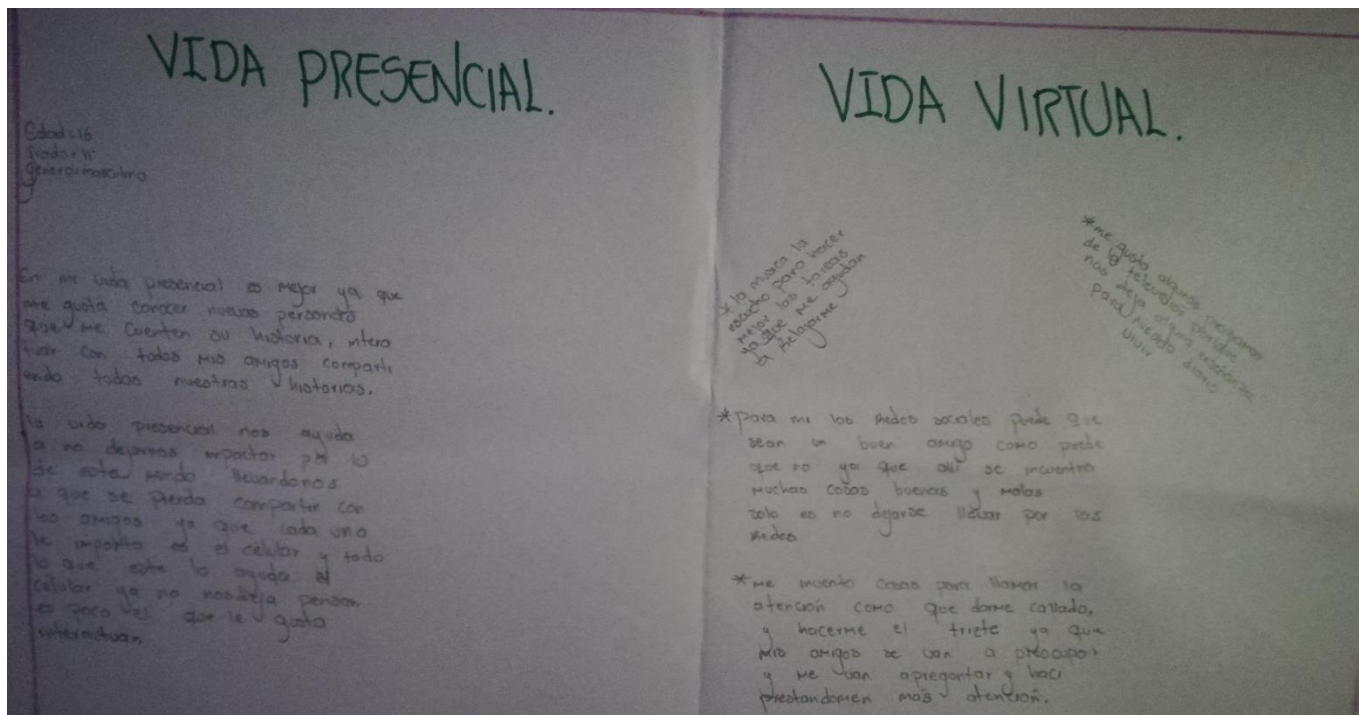 VIDA PRESENCIAL.
Edad: 16
Grado: 11°
genero: masculino
En mi vida presencial es mejor ya que
me gusta conocer nuevas personas
que me cuenten su historia, intera
tuar con todos mis amigos comparti
endo todas nuestras historias.
la vida presencial nos ayuda
a no dejarnos impactar por lo
de este mundo llevandonos
a que se pierda compartir con
los amigos ya que cada uno
le importa es el célular y todo
lo que este lo ayuda el
celular ya no nos deja pensar
es poco el que le gusta
interactuar
VIDA VIRTUAL.
*la musica la
escucho para hacer
mejor las tareas
ya que me ayudan
a relajarme
*me gusta algunos programas
de la televisión
nos deja alguna enseñanza
para nuestro diario
vivir
*para mi las Redes sociales puede que
sean un buen amigo como puede
que no ya que alli se incuentra
muchas cosas buenas y malas
solo es no dejarse llevar por las
Redes
*me invento cosas para llamar la
atención como que darme callado,
y hacerme el triste ya que
mis amigos se van a preocupar
y me van apregontar y haci
prestandomen más atención.